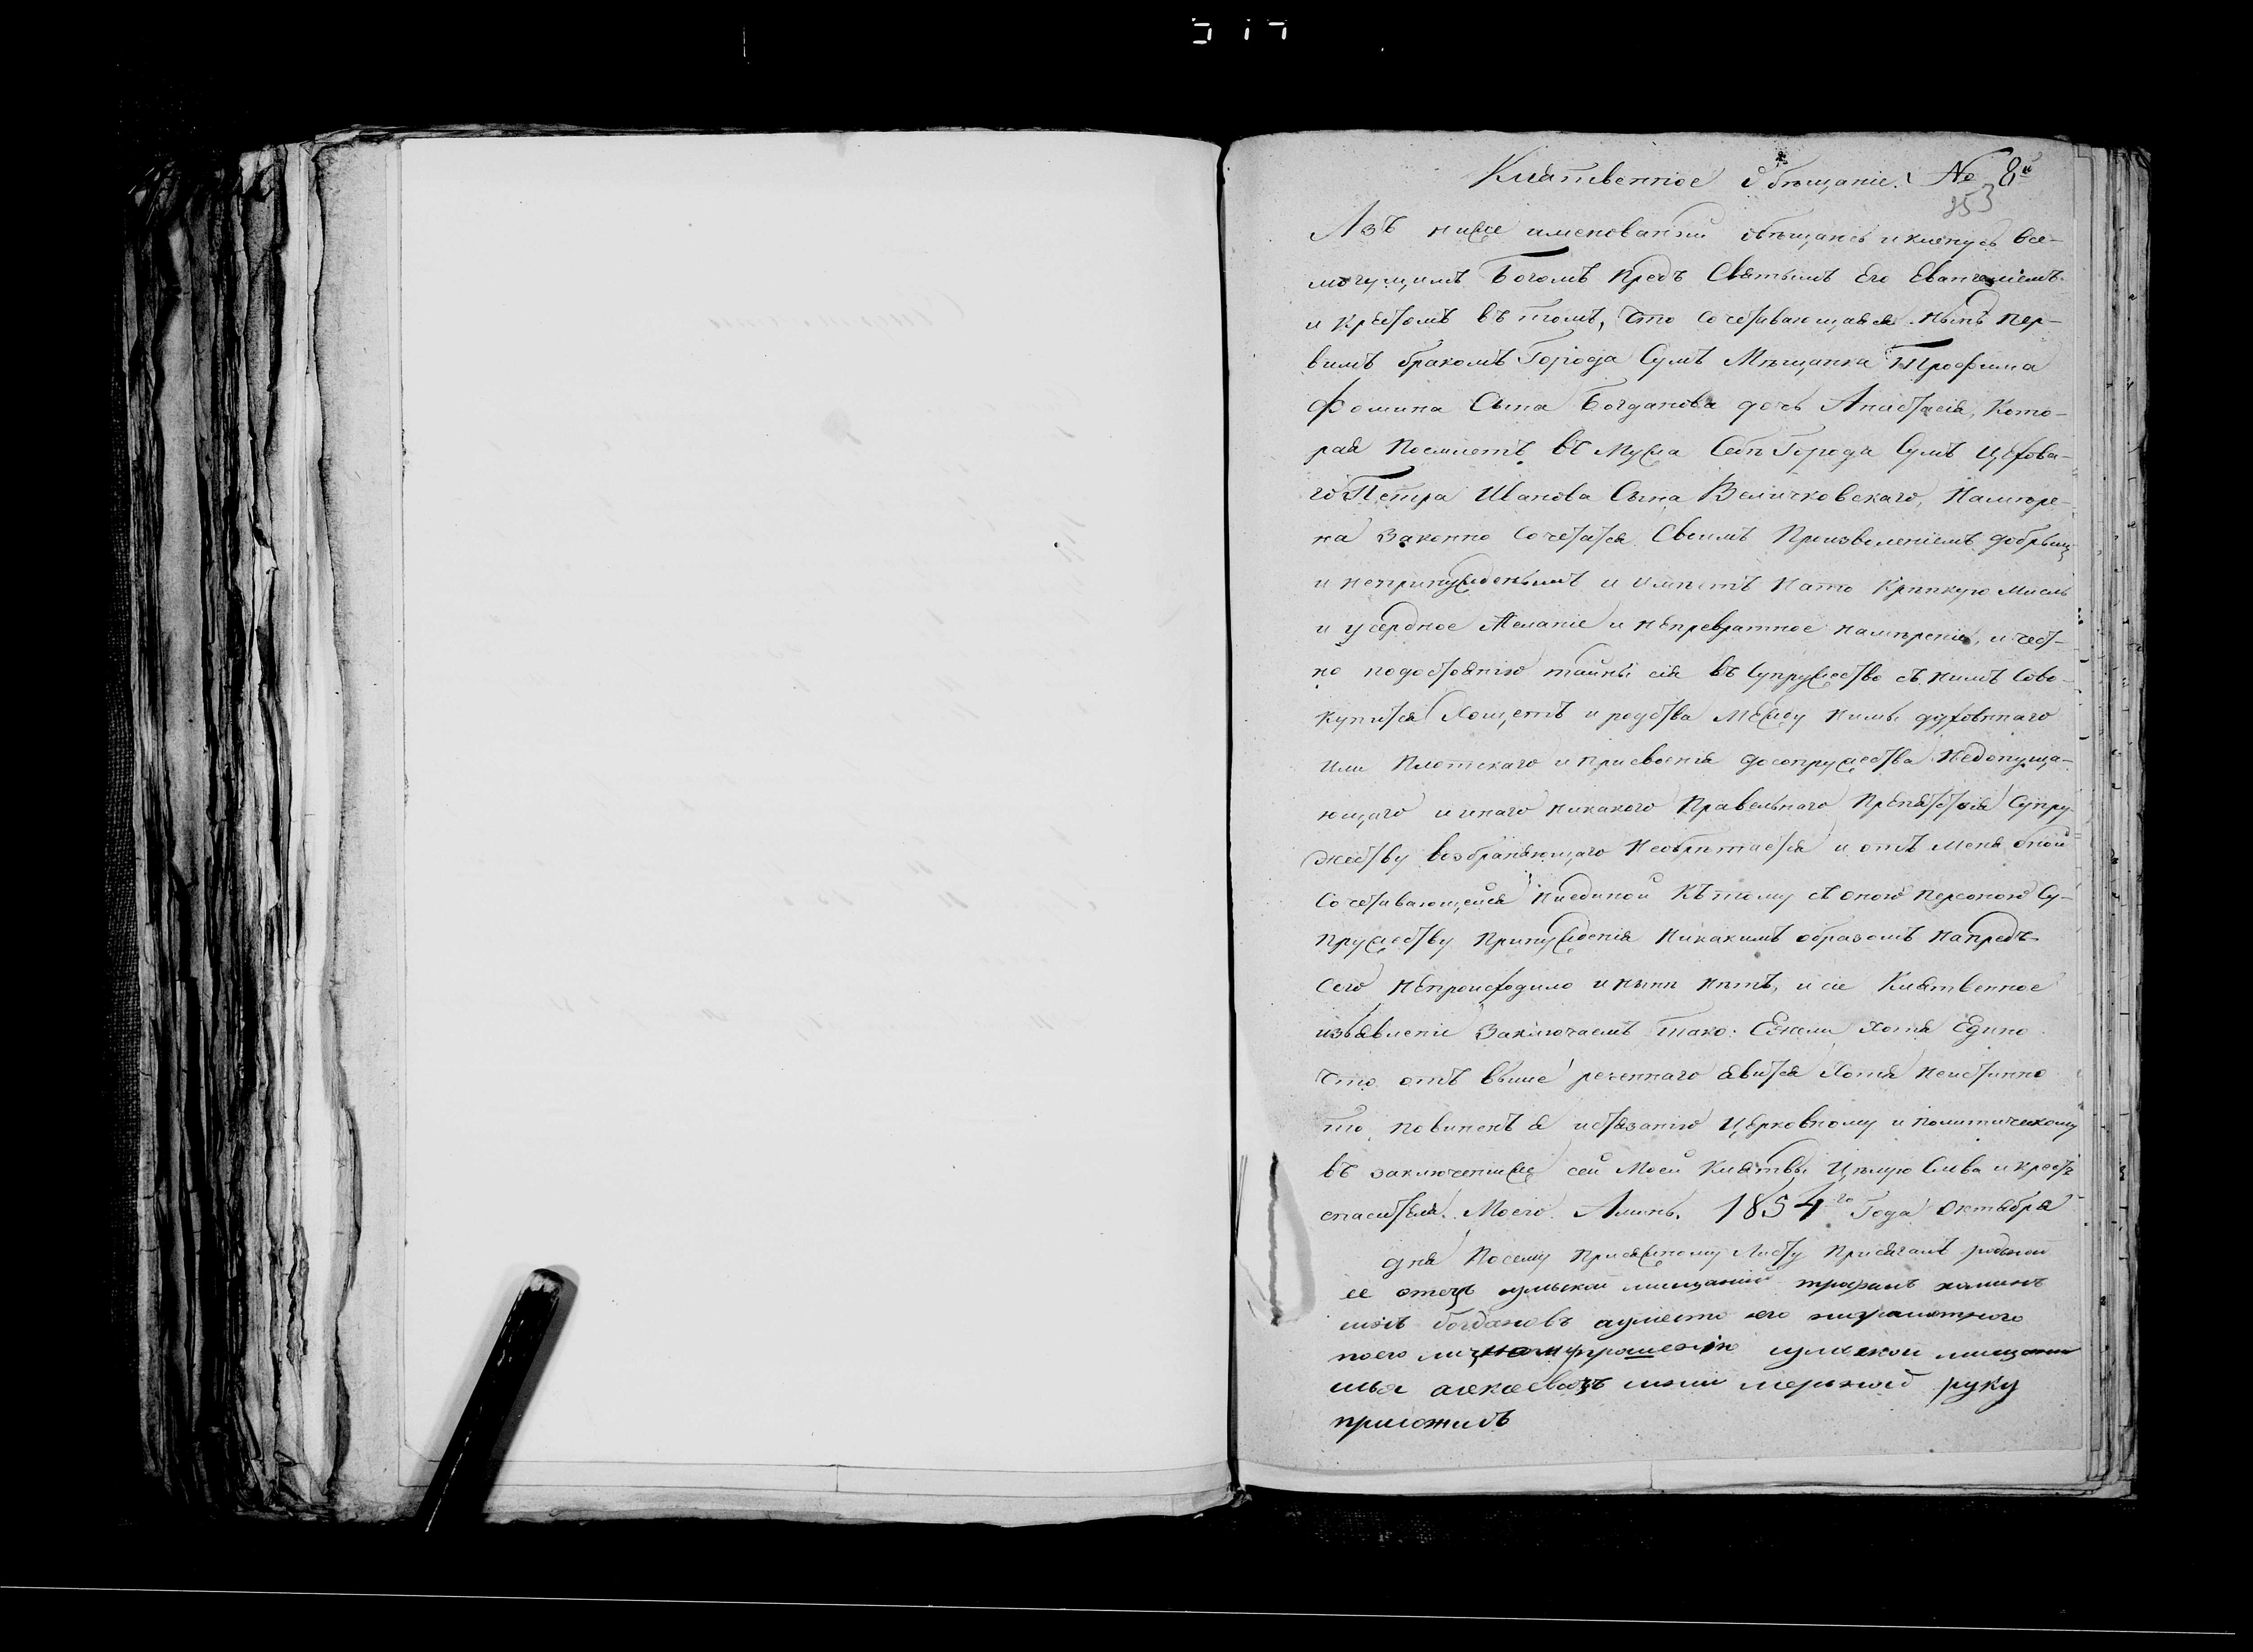 Клятвенное обѣщаніе. № 8й
353
Азъ ниже именованный обѣщаюсь и кленусь Все-
могущимъ Богомъ предъ Святымъ Его Евангеліемъ
и Крестомъ въ томъ, что сочетавающаяся нынѣ пер-
вимъ бракомъ Города Сумъ Мѣщанка Трофима
Фомина Сына Богданова дочь Анастасія, Кото-
рая Поемлетъ въ Мужа Себѣ Города Сумъ Цехова-
го Петра Иванова Сына Величковскаго, Намѣре-
на Законно Сочетатся Своимъ Произволеніемъ добрымъ
и непринужденнымъ и имѣетъ Нато Крѣпкую Мисль
и усердное Желаніе и Непревратное намѣреніе, и чест-
но подостоянію тайны сія въ Супружество съ нимъ Сово-
купится Хощетъ и родства Между Ними духовннаго
Или Плотскаго и присвоенія досопружества Недопуща-
ющаго и инаго никакого Правельнаго Препятствія Супру-
жеству возбраняющаго Необрѣтается и отъ Меня оной
Сочетавающейся Ниединой Къ тому съ оною Персоною Су-
пружеству Принужденія Никакимъ образомъ Напредь
Сего Непроисходило и нынѣ нѣтъ, и сіе Клятвенное
изъявленіе Заключаемъ Тако: Ежели Хотя Едино
Что отъ выше реченнаго явится Хотя Неистинно
то повиненъ я истязанію Церковному и политическому
въ заключеніиже сей Моей Клятвы Цѣлую Слова и крестъ
спасителя Моего. Аминь. 1854го Года Октября
дня Посему Присяжному Листу Присягалъ родной
ее отецъ сумской мещанинъ трофимъ хоминъ
синъ богдановъ ауместо его ниграмотного
поего личному прошенію сумской мещанин
илья руку
приложилъ